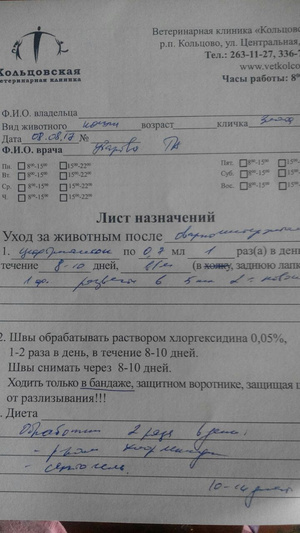 Кольцовская
ветеринарная клиника
Ветеринарная клиника «Кольцовс
р.п. Кольцово, ул. Центральная,
Тел.: 263-11-27, 336-7
www.vetkolco
Часы работы: 8
Ф.И.О. владельца
Вид животного кошка возраст кличка
Дата 08.08.17 №
Ф.И.О. врача
Пн. 8⁰⁰-15⁰⁰ 15⁰⁰-22⁰⁰ Пят. 8⁰⁰-15⁰⁰ 15⁰⁰
Вт. 8⁰⁰-15⁰⁰ 15⁰⁰-22⁰⁰ Суб. 8⁰⁰-15⁰⁰ 15⁰⁰
Ср. 8⁰⁰-15⁰⁰ 15⁰⁰-22⁰⁰ Вос. 8⁰⁰-15⁰⁰ 15⁰⁰
Ч. 8⁰⁰-15⁰⁰ 15⁰⁰-22⁰⁰
Лист назначений
Уход за животным после
1. по мл 1 раз(а) в ден
течение 8-10 дней, (в холку, заднюю лапк
1 в 5 мл
2. Швы обрабатывать раствором хлоргексидина 0,05%,
1-2 раза в день, в течение 8-10 дней.
Швы снимать через 8-10 дней.
Ходить только в бандаже, защитном воротнике, защищая ш
от разлизывания!!!
. Диета
2 раза в день
10-14 дней